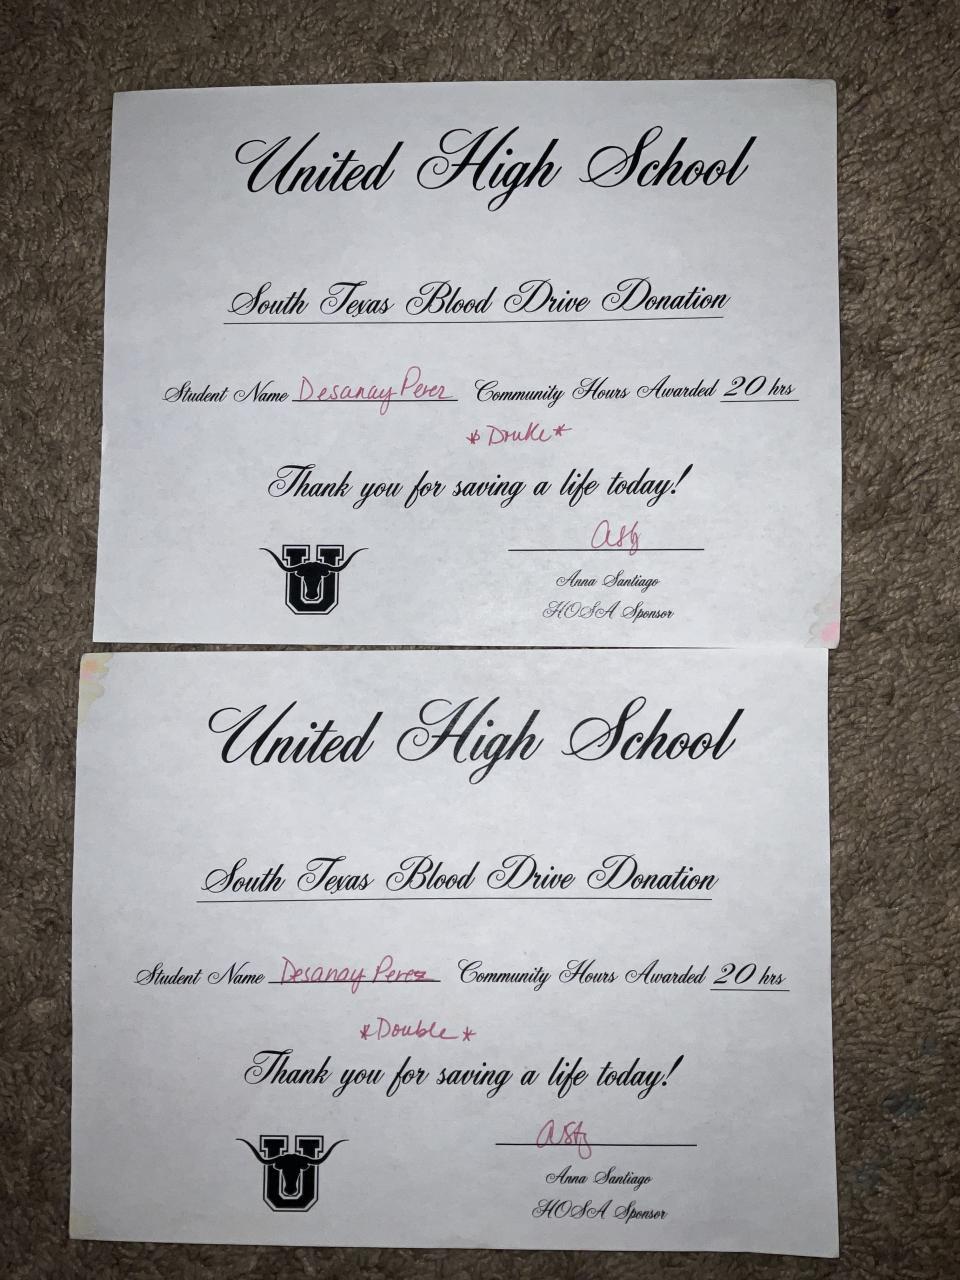 United High School
South Texas Blood Drive Donation
Student Name Desanay Perez Community Hours Awarded 20 hrs
Thank you for saving a life today!
U
Anna Santiago
HOSA Sponsor
United High School
South Texas Blood Drive Donation
Student Name Desanay Perez Community Hours Awarded 20 hrs
*Double*
Thank you for saving a life today!
U
Anna Santiago
HOSA Sponsor